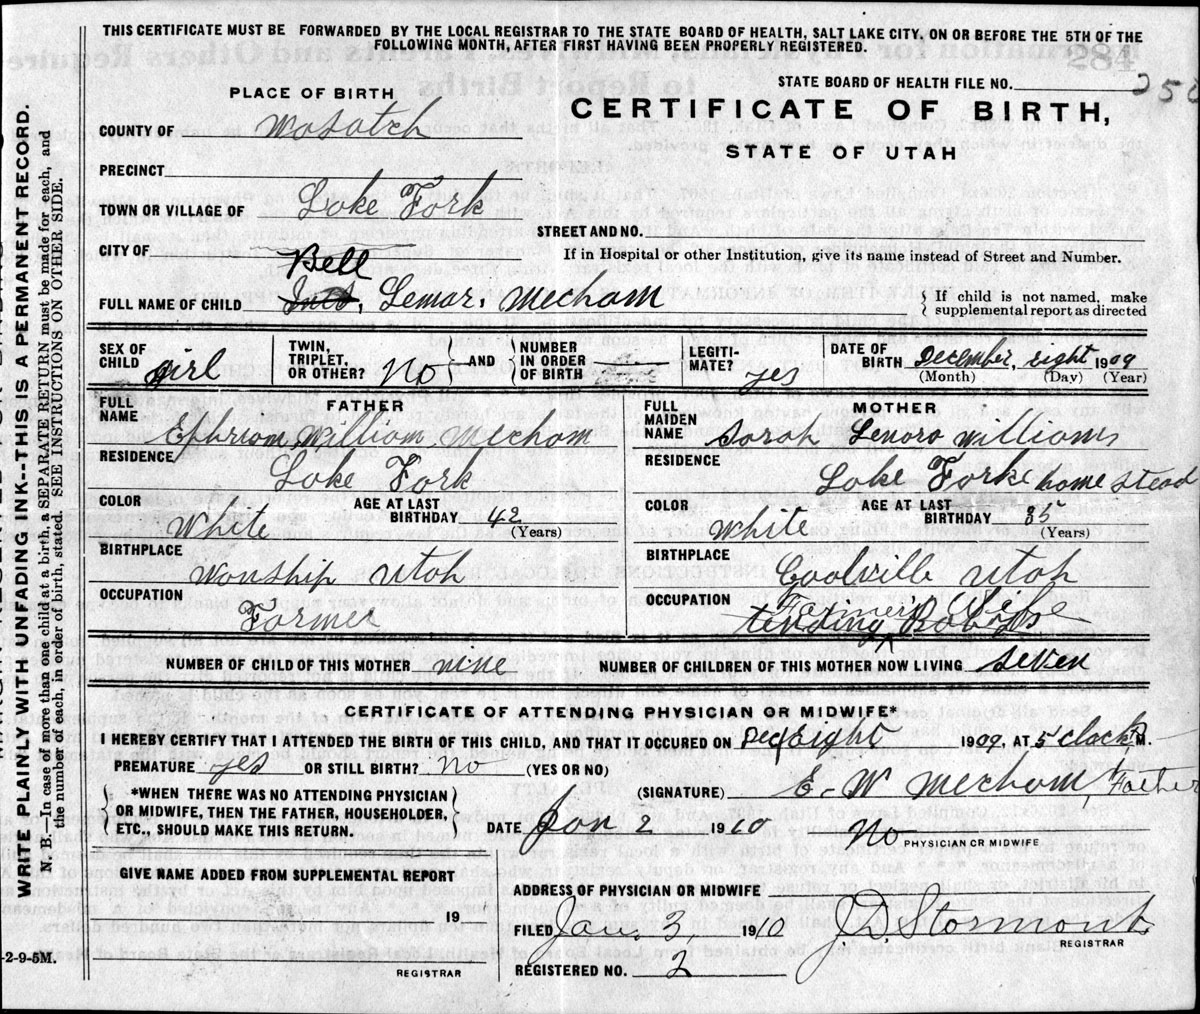 THIS CERTIFICATE MUST BE FORWARDED BY THE LOCAL REGISTRAR TO THE STATE BOARD OF HEALTH, SALT LAKE CITY, ON OR BEFORE THE 5TH OF THE
FOLLOWING MONTH, AFTER FIRST HAVING BEEN PROPERLY REGISTERED.
284
STATE BOARD OF HEALTH FILE NO. 250
PLACE OF BIRTH
CERTIFICATE OF BIRTH,
STATE OF UTAH
COUNTY OF Wasatch
PRECINCT
TOWN OR VILLAGE OF Lake Fork
STREET AND NO.
CITY OF
If in Hospital or other Institution, give its name instead of Street and Number.
Bell
FULL NAME OF CHILD Lemar. Mecham
{ If child is not named, make
supplemental report as directed
SEX OF CHILD girl
TWIN, TRIPLET, OR OTHER? No } AND { NUMBER IN ORDER OF BIRTH
LEGITIMATE? yes
DATE OF BIRTH December, eight 1909
(Month) (Day) (Year)
FATHER
FULL NAME Ephriam William Mecham
RESIDENCE Lake Fork
COLOR White
AGE AT LAST BIRTHDAY 42 (Years)
BIRTHPLACE Wanship Utah
OCCUPATION Farmer
MOTHER
FULL MAIDEN NAME Sarah Lenora Williams
RESIDENCE Lake Fork home stead
COLOR White
AGE AT LAST BIRTHDAY 35 (Years)
BIRTHPLACE Coalville Utah
OCCUPATION Farmers Wife
tending Babys
NUMBER OF CHILD OF THIS MOTHER nine
NUMBER OF CHILDREN OF THIS MOTHER NOW LIVING seven
CERTIFICATE OF ATTENDING PHYSICIAN OR MIDWIFE*
I HEREBY CERTIFY THAT I ATTENDED THE BIRTH OF THIS CHILD, AND THAT IT OCCURED ON Dec Eight 1909, AT 5 clock P M.
PREMATURE yes OR STILL BIRTH? No (YES OR NO)
(SIGNATURE) E-W Mecham, Father
{ *WHEN THERE WAS NO ATTENDING PHYSICIAN
OR MIDWIFE, THEN THE FATHER, HOUSEHOLDER,
ETC., SHOULD MAKE THIS RETURN. }
DATE Jan 2 1910 No
PHYSICIAN OR MIDWIFE
GIVE NAME ADDED FROM SUPPLEMENTAL REPORT
19
REGISTRAR
ADDRESS OF PHYSICIAN OR MIDWIFE
FILED Jan. 3 1910 J.D. Stormont
REGISTRAR
REGISTERED NO. 2
-2-9-5M.
WRITE PLAINLY WITH UNFADING INK--THIS IS A PERMANENT RECORD.
N. B.—In case of more than one child at a birth, a SEPARATE RETURN must be made for each, and
the number of each, in order of birth, stated. SEE INSTRUCTIONS ON OTHER SIDE.